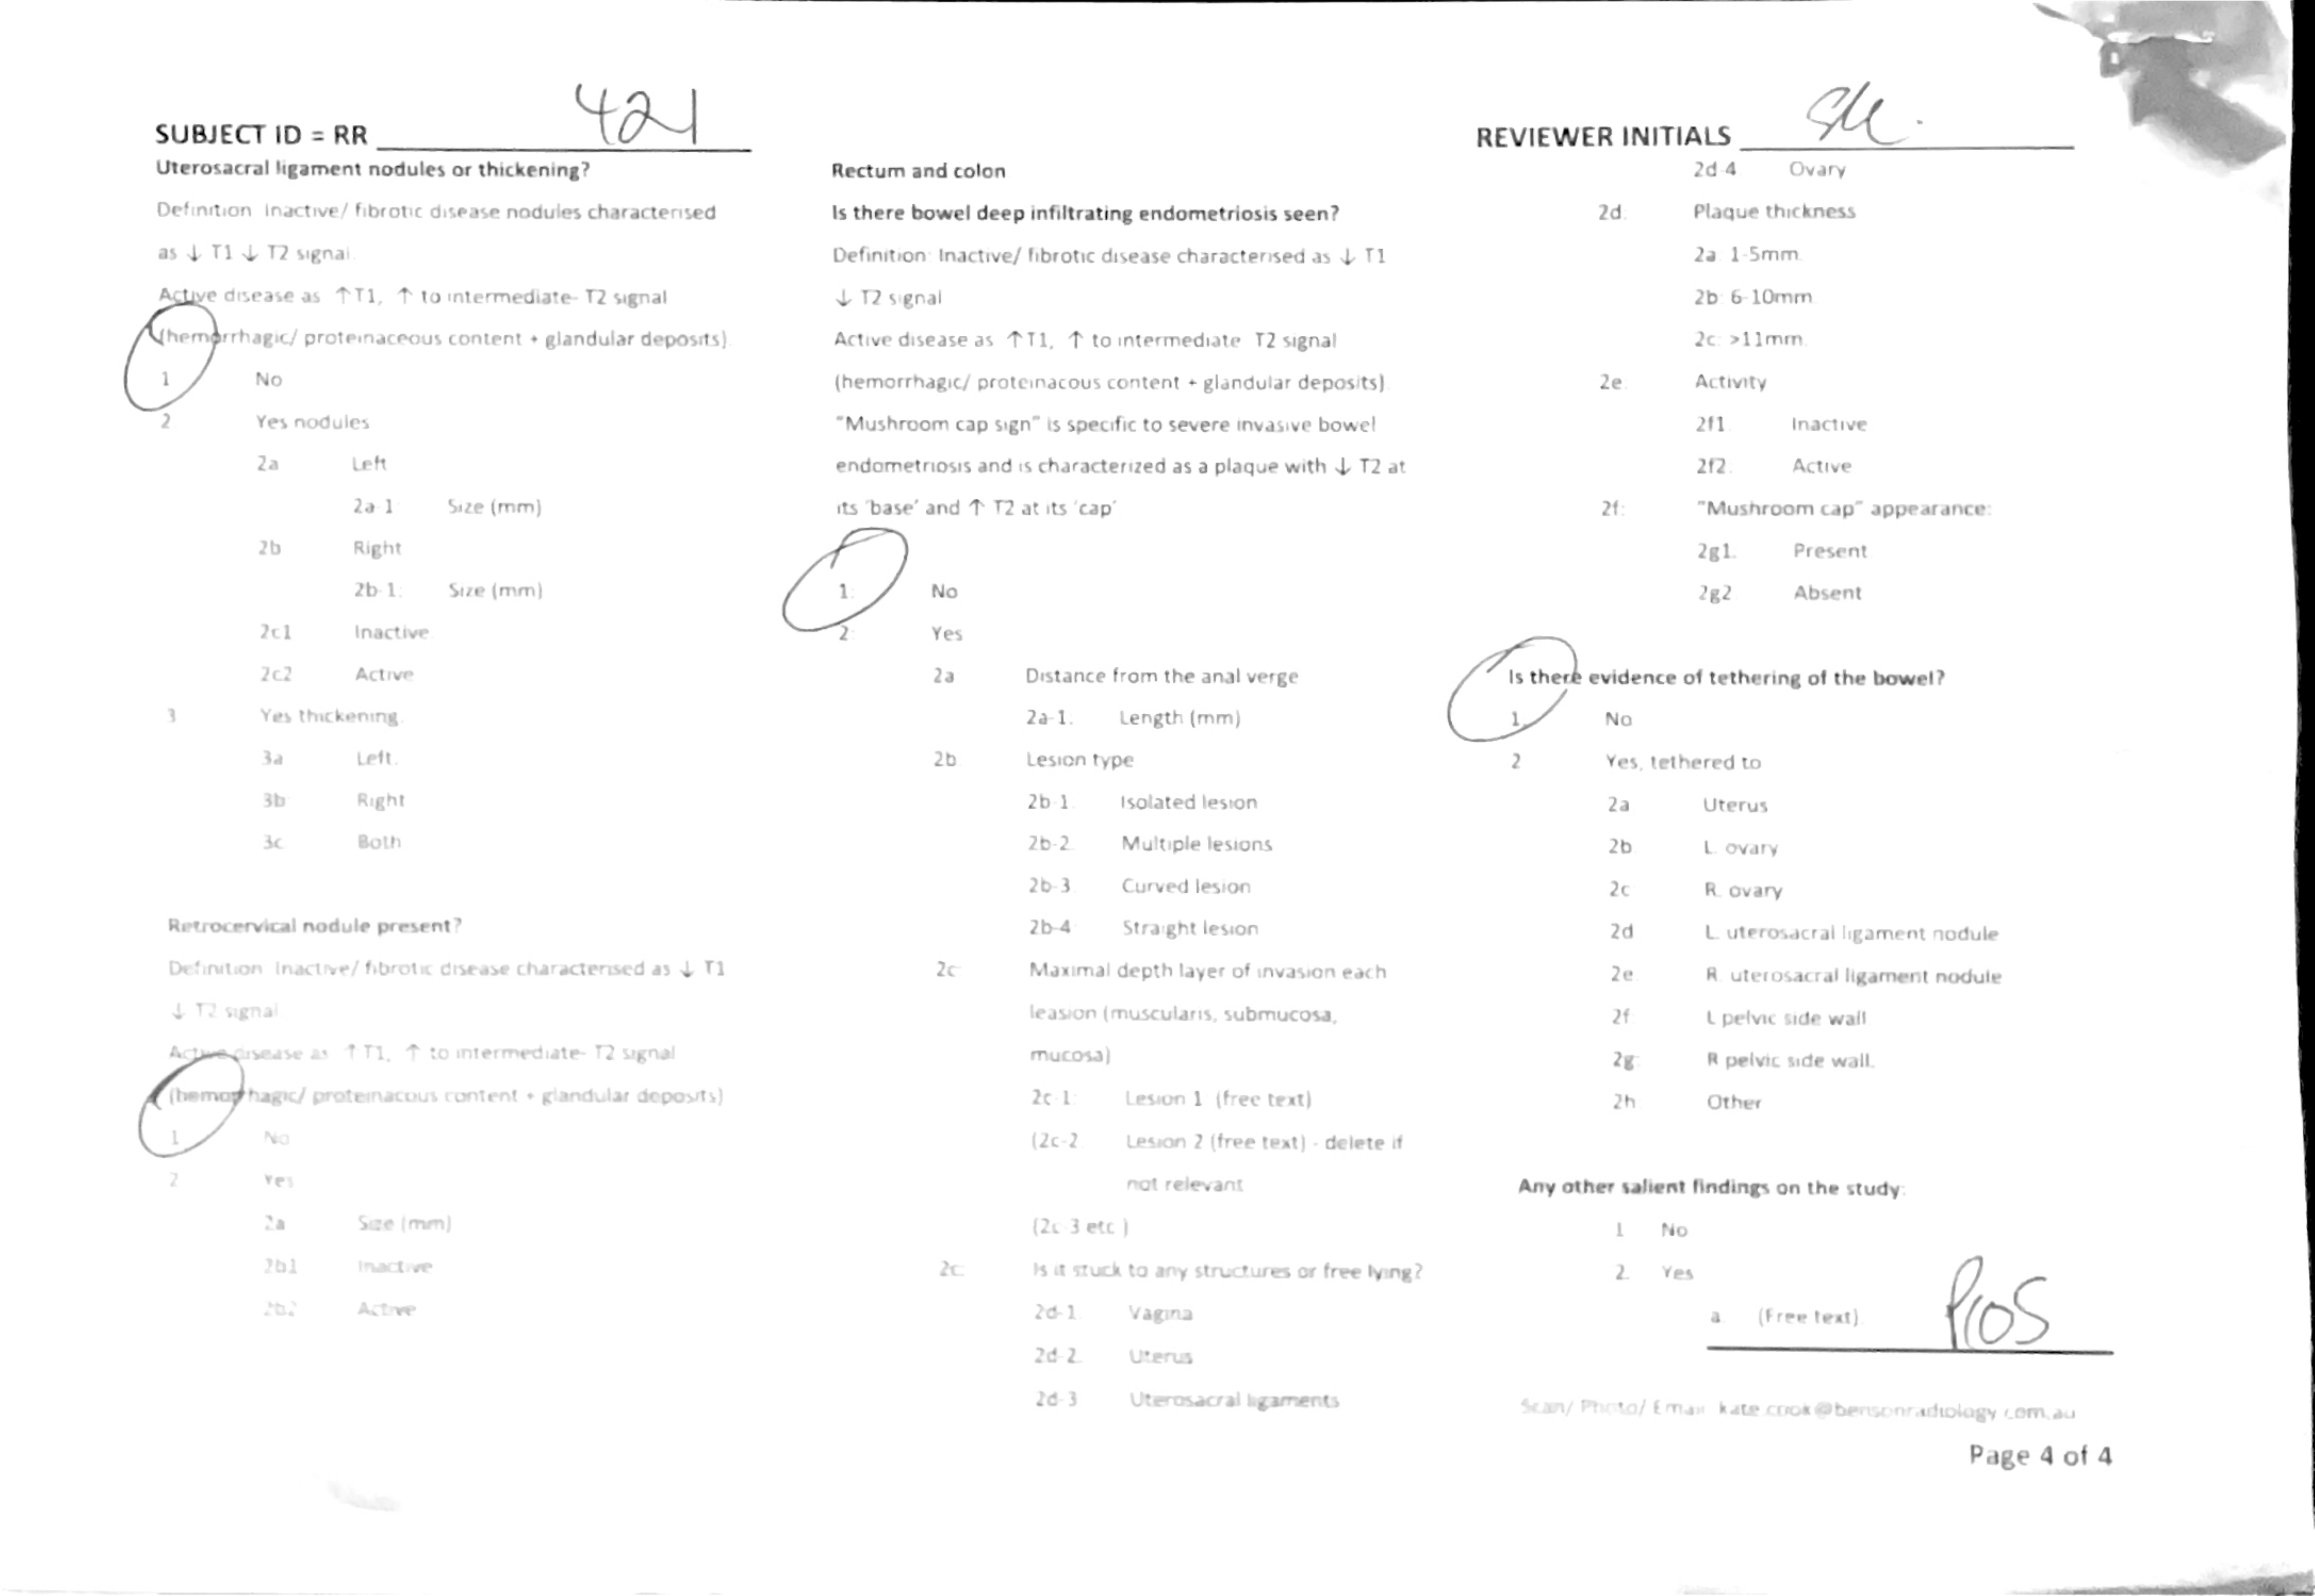 SUBJECT ID = RR 421
REVIEWER INITIALS
Uterosacral ligament nodules or thickening?
Definition Inactive/ fibrotic disease nodules characterised
as ↓ T1 ↓ T2 signal.
Active disease as ↑T1, ↑ to intermediate- T2 signal
(hemorrhagic/ proteinaceous content + glandular deposits).
1 No
2 Yes nodules
2a Left
2a-1: Size (mm)
2b Right
2b-1: Size (mm)
2c1 Inactive.
2c2 Active
3 Yes thickening.
3a Left.
3b Right
3c Both
Retrocervical nodule present?
Definition Inactive/ fibrotic disease characterised as ↓ T1
↓ T2 signal
Active disease as ↑T1, ↑ to intermediate- T2 signal
(hemorrhagic/ proteinacous content + glandular deposits)
1 No
2 Yes
2a Size (mm)
2b1 Inactive
2b2 Active
Rectum and colon
Is there bowel deep infiltrating endometriosis seen?
Definition: Inactive/ fibrotic disease characterised as ↓ T1
↓ T2 signal
Active disease as ↑T1, ↑ to intermediate T2 signal
(hemorrhagic/ proteinacous content + glandular deposits).
"Mushroom cap sign" is specific to severe invasive bowel
endometriosis and is characterized as a plaque with ↓ T2 at
its 'base' and ↑ T2 at its 'cap'
1: No
2: Yes
2a Distance from the anal verge
2a-1. Length (mm)
2b Lesion type
2b-1. Isolated lesion
2b-2. Multiple lesions
2b-3. Curved lesion
2b-4 Straight lesion
2c Maximal depth layer of invasion each
leasion (muscularis, submucosa,
mucosa)
2c-1: Lesion 1 (free text)
(2c-2. Lesion 2 (free text) - delete if
not relevant
(2c-3 etc )
2c: Is it stuck to any structures or free lying?
2d-1. Vagina
2d-2. Uterus
2d-3 Uterosacral ligaments
2d-4 Ovary
2d: Plaque thickness
2a: 1-5mm.
2b: 6-10mm
2c: >11mm.
2e: Activity
2f1. Inactive
2f2. Active
2f: "Mushroom cap" appearance:
2g1. Present
2g2. Absent
Is there evidence of tethering of the bowel?
1. No
2 Yes, tethered to
2a Uterus
2b L. ovary
2c R. ovary
2d L. uterosacral ligament nodule
2e R. uterosacral ligament nodule
2f L pelvic side wall
2g: R pelvic side wall.
2h Other
Any other salient findings on the study:
1 No
2. Yes
a. (Free text) PCOS
Scan/ Photo/ Email kate.cook@bensonradiology.com.au
Page 4 of 4